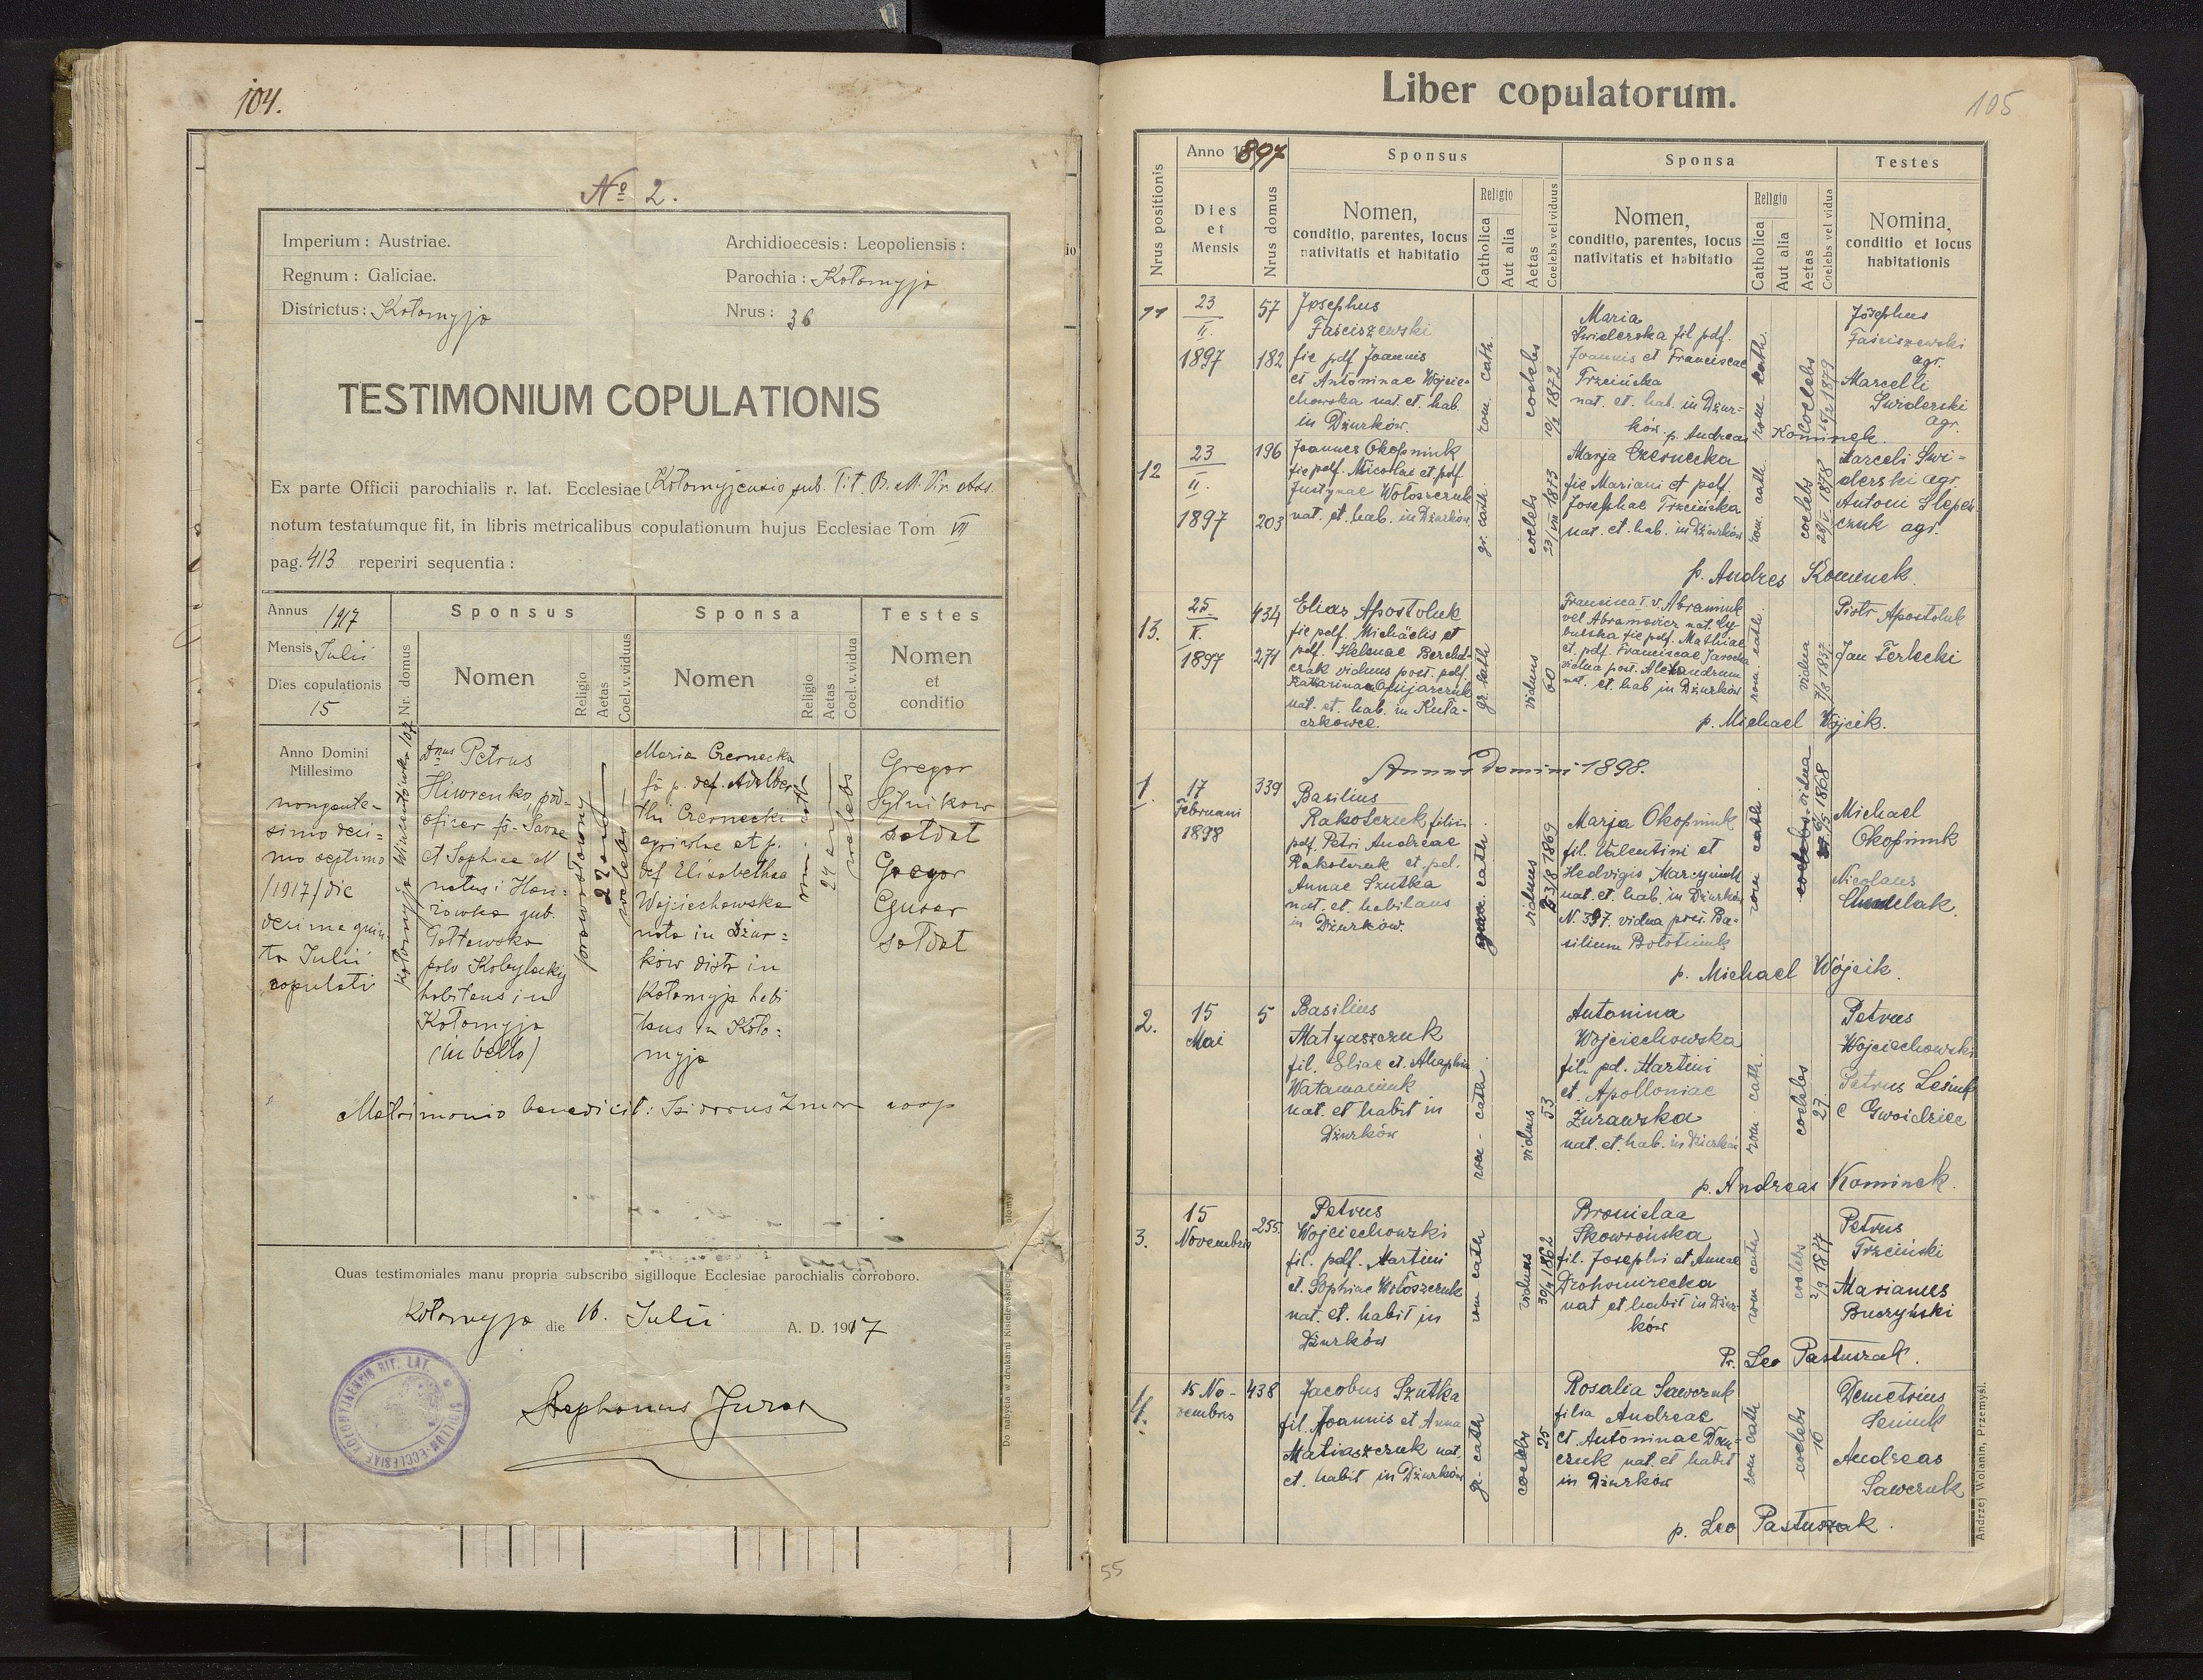 104.
Nº 2.
Imperium: Austriae.
Archidioecesis: Leopoliensis:
Regnum: Galiciae.
Parochia: Kołomyja
Districtus: Kołomyja
Nrus: 36
TESTIMONIUM COPULATIONIS
Ex parte Officii parochialis r. lat. Ecclesiae Kołomyjensis sub. Tit. B. M. Vir. Ass.
notum testatumque fit, in libris metricalibus copulationum hujus Ecclesiae Tom VII
pag. 413 reperiri sequentia:
Annus 1917
Mensis Julii
Dies copulationis
15
Nr. domus
Sponsus
Nomen
Religio
Aetas
Coel. v. viduus
Sponsa
Nomen
Religio
Aetas
Coel. v. vidua
Testes
Nomen
et
conditio
Anno Domini
Millesimo
nongente-
simo deci=
mo septimo
/1917/ die
decima quin
ta Julii
copulati
Kołomyja Wincentówka 107
Dnus Petrus
Hiworenko, pod-
oficer fs. Savae
et Sophiae N
natus i Han-
rowka gub.
Połtawska
pow Kobylacky
habitans in
Kołomyja
(in bello)
prawosławny
27 ann
coelebs
Maria Czernecka
fa p. def. Adalber
thi Czernecki
agricolae et p.
def Elisabethae
Wojciechowska
nata in Dżur=
ków distr in
Kołomyja habi
tans in Koło=
myja
rom. cath
24 an
coelebs
Gregor
Sytnikow
sołdat
Gregor
Gusar
sołdat
Matrimonio benedicit: Isidorus Zmora coop
Quas testimoniales manu propria subscribo sigilloque Ecclesiae parochialis corroboro.
Kołomyja die 16. Julii A. D. 1917
Stephanus Juras
Liber copulatorum.
105
Nrus positionis
Anno 1897
Dies
et
Mensis
Nrus domus
Sponsus
Nomen,
conditio, parentes, locus
nativitatis et habitatio
Religio
Catholica
Aut alia
Aetas
Coelebs vel viduus
Sponsa
Nomen,
conditio, parentes, locus
nativitatis et habitatio
Religio
Catholica
Aut alia
Aetas
Coelebs vel vidua
Testes
Nomina,
conditio et locus
habitationis
11
23
II.
1897
57
182
Josephus
Faściszewski
fic pdf Joannis
et Antoninae Wojcie-
chowska nat. et. hab.
in Dżurków.
rom. cath.
coelebs
10/2 1872
Maria
Swiderska fil pdf.
Joannis et Franciscae
Trzcińska
nat. et. hab. in Dżur=
ków.
rom. cath.
coelebs
15/2 1879
Josephus
Faściszewski
agr.
Marcelli
Swiderski
agr.
p. Andreas Kominek.
12
23
II.
1897
196
203
Joannes Okopniuk
fic pdf. Nicolai et pdf
Justynae Wołoszczuk
nat. et. hab. in Dżurków.
gr. cath.
coelebs
23/VII 1873
Marja Czernecka
fic Mariani et pdf.
Josephae Trzcińska
nat. et. hab. in Dżurków
rom. cath.
coelebs
28/II 1878
Marceli Swi-
derski agr.
Antoni Slepen
czuk agr.
p. Andres Kominek.
13.
25
X.
1897
434
271
Elias Apostoluk
fic pdf. Michäelis et
pdf. Helenae Berehd-
czak viduus post. pdf.
Katharinae Opijarczuk
nat. et. hab. in Kuła-
czkowce.
gr. cath
viduus
60
Francisca I. v. Abramiuk
vel Abramovicz nat. Cy-
bulska fic pdf. Mathiae
et. pdf. Franciscae Jarocka
vidua post. Alexandrum
nat. et. hab in Dżurków
rom. cath.
vidua
7/8 1837
Piotr Apostoluk
Jan Terlecki
p. Michael Wojcik.
Anno domini 1898.
1.
17
Februarii
1898
339
Basilius
Rakołczuk filius
pdf. Petri Andreae
Rakołczuk et. pd.
Annae Szutka
nat. et. habitans
in Dżurków.
cath
viduus
23/8 1869
Marja Okopniuk
fil. Valentini et
Hedvigis Marcyniuk
nat. et. hab. in Dżurków
N. 397. vidua post. Ba-
silium Bołotniuk
rom cath.
vidua
1868
Michael
Okopniuk
Nicolaus
p. Michael Wójcik.
2.
15
Mai
5
Basilius
Matyaszczuk
fil. Eliae et. Ahaphia
Watamaniuk
nat. et habit in
Dżurków
rom - cath.
viduus
53
Antonina
Wojciechowska
fil. pd. Martini
et. Apolloniae
Żurawska
nat. et. hab. in Dżurków
rom. cath.
coelebs
27
Petrus
Wojciechowski
Petrus Lesiuk
e Gwoździec
p. Andreas Kominek.
3.
15
Novembris
255.
Petrus
Wojciechowski
fil. pdf. Martini
et. Sophiae Wołoszczuk
nat. et. habit in
Dżurków
rom cath
viduus
30/4 1862
Bronislaa
Skowrońska
fil. Josephi et Annae
Drohomirecka
nat et habit in Dżur-
ków
rom cath
coelebs
2/9 1877
Petrus
Trzciński
Marianus
Buczyński
Pr. Leo Pastuszak.
4.
15 No-
vembris
438
Jacobus Szutka
fil. Joannis et Anna
Matiaszczuk nat.
et. habit in Dżurków
gr. cath
coelebs
25
Rosalia Sawczuk
filia Andreae
et. Antoninae Dzu-
czuk nat. et habit
in Dżurków
rom cath
coelebs
16
Demetrius
Seniuk
Andreas
Sawczuk
p. Leo Pastuszak.
Andrzej Wolanin, Przemyśl.
55